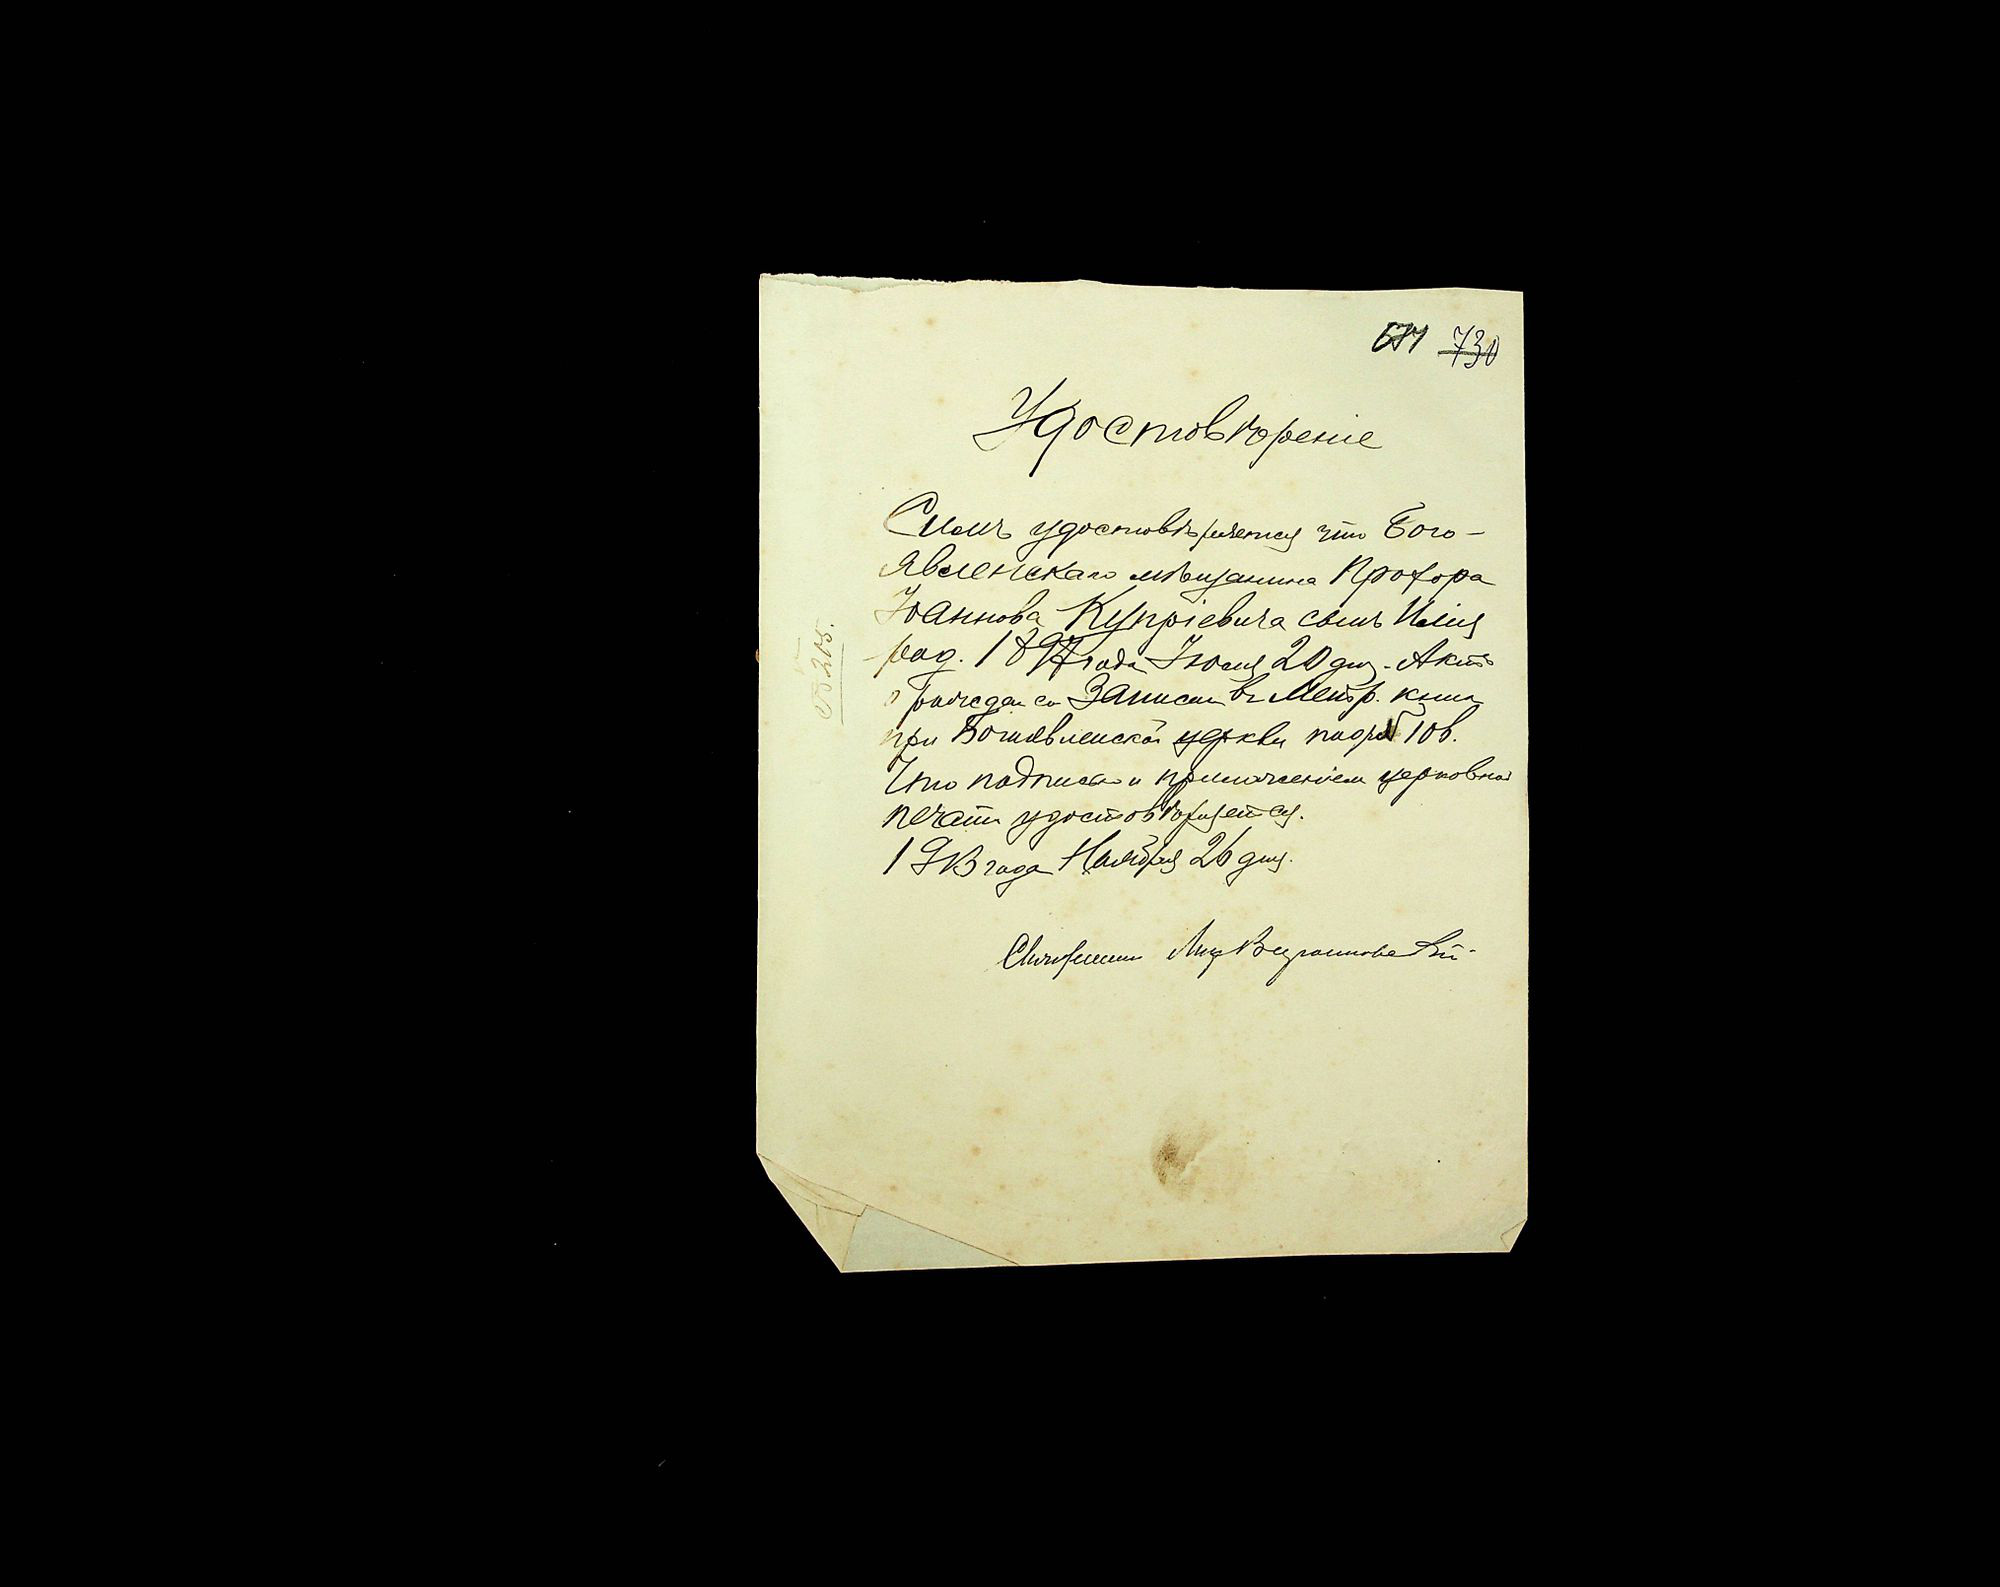 730
Удостовѣреніе
Симъ удостовѣряется что Бого-
явленскаго мѣщанина Прохора
Іоаннова Купріевича сынъ Илія
род. 1897 года Іюля 20 дня. Актъ
о рожденіи записан въ Метр. книги
при Богоявленской церкви под № 108.
Что подписью и приложеніем церковной
печати удостовѣряется.
1913 года Ноября 26 дня.
Священник